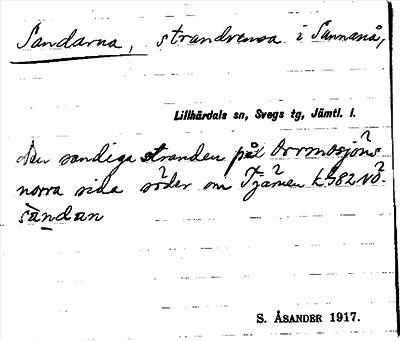 Sandarna, strandremsa i Sannanå,
Lillhärdals sn, Svegs tg, Jämtl. l.
den sandiga stranden på Orrmosjöns
norra sida söder om Tjärnen L 982 NÖ.
sàndan
S. ÅSANDER 1917.